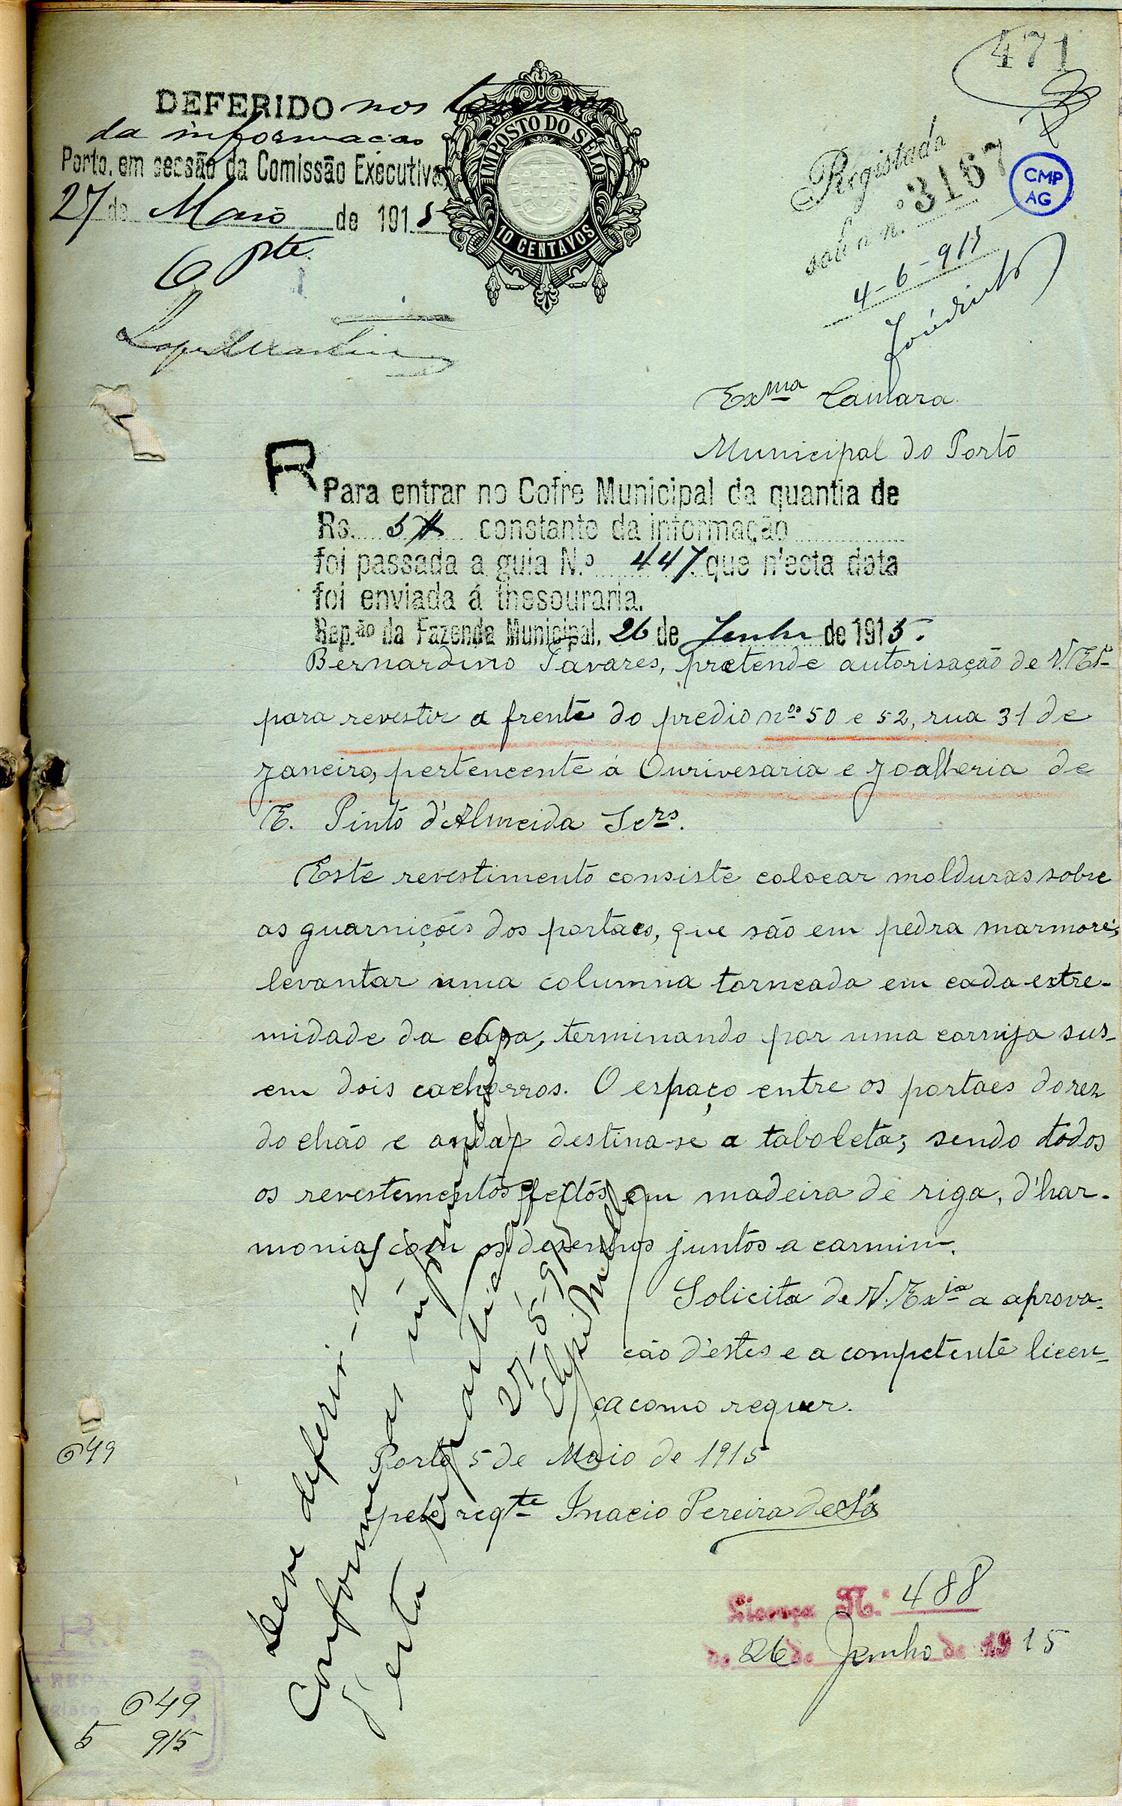 471
DEFERIDO nos termos
da informação
Porto, em sessão da Comissão Executiva,
27 de Maio de 1915
IMPOSTO DO SELO
10 CENTAVOS
Registado
sob o n.º 3167
4-6-915
CMP
AG
Exma Camara
Municipal do Porto
R
Para entrar no Cofre Municipal da quantia de
Rs. 5$ constante da informação
foi passada a guia N.º 447 que n'esta data
foi enviada á thesouraria.
Rep.ão da Fazenda Municipal, 26 de Junho de 1915.
Bernardino Tavares, pretende autorisação de V. Exª
para revestir a frente do predio nos 50 e 52, rua 31 de
Janeiro, pertencente á Ourivesaria e Joalheria de
E. Pinto d'Almeida Sers.
Este revestimento consiste colocar molduras sobre
as guarnições dos portaes, que são em pedra marmore,
levantar uma columna torneada em cada extre-
midade da casa, terminando por uma cornija sus-
em dois cachorros. O espaço entre os portaes do rez
do chão e andar destina-se a taboleta; sendo todos
os revestimentos feitos em madeira de riga, d'har-
monia com os desenhos juntos a carmin.
Solicita de V. Exia a aprova-
cão d'estes e a competente licen-
ça como requer.
Porto 5 de Maio de 1915
pelo reqte Inacio Pereira de Sá
Deve deferir-se
conforme as informações
d'esta repartição
21-5-915
649
Licença N.º 488
de 26 de Junho de 1915
649
5 915